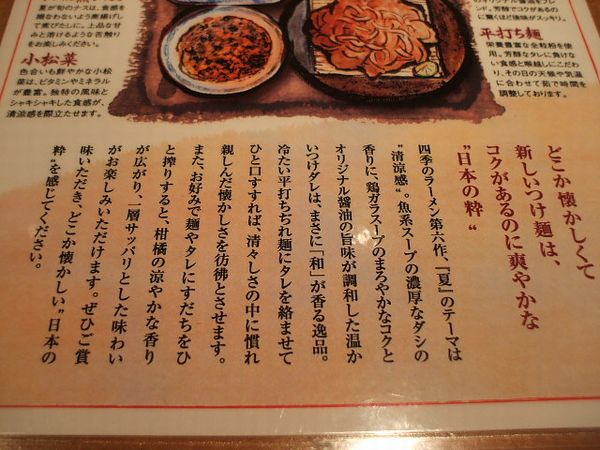 夏が旬のナスは、食感を
損なわないよう素揚げし
て煮びたしに。上品な甘
みと溶けるような舌触り
をお楽しみください。
小松菜
色合いも鮮やかな小松
菜は、ビタミンやミネラル
が豊富。独特の風味と
シャキシャキした食感が、
清涼感を際立たせます。
ンド。芳醇でコクがあるの
に驚くほど後味がスッキリ。
平打ち麺
栄養豊富な全粒粉を使
用。芳醇なタレに負けな
い食感と喉越しにこだわ
り、その日の天候や気温
に合わせて茹で時間を
調整しております。
どこか懐かしくて
新しいつけ麺は、
コクがあるのに爽やかな
"日本の粋"
四季のラーメン第六作、『夏』のテーマは
"清涼感"。魚系スープの濃厚なダシの
香りに、鶏ガラスープのまろやかなコクと
オリジナル醤油の旨味が調和した温か
いつけダレは、まさに「和」が香る逸品。
冷たい平打ちぢれ麺にタレを絡ませて
ひと口すすれば、清々しさの中に慣れ
親しんだ懐かしさを彷彿とさせます。
また、お好みで麺やタレにすだちをひ
と搾りすると、柑橘の涼やかな香り
が広がり、一層サッパリとした味わい
がお楽しみいただけます。ぜひご賞
味いただき、どこか懐かしい"日本の
粋"を感じてください。